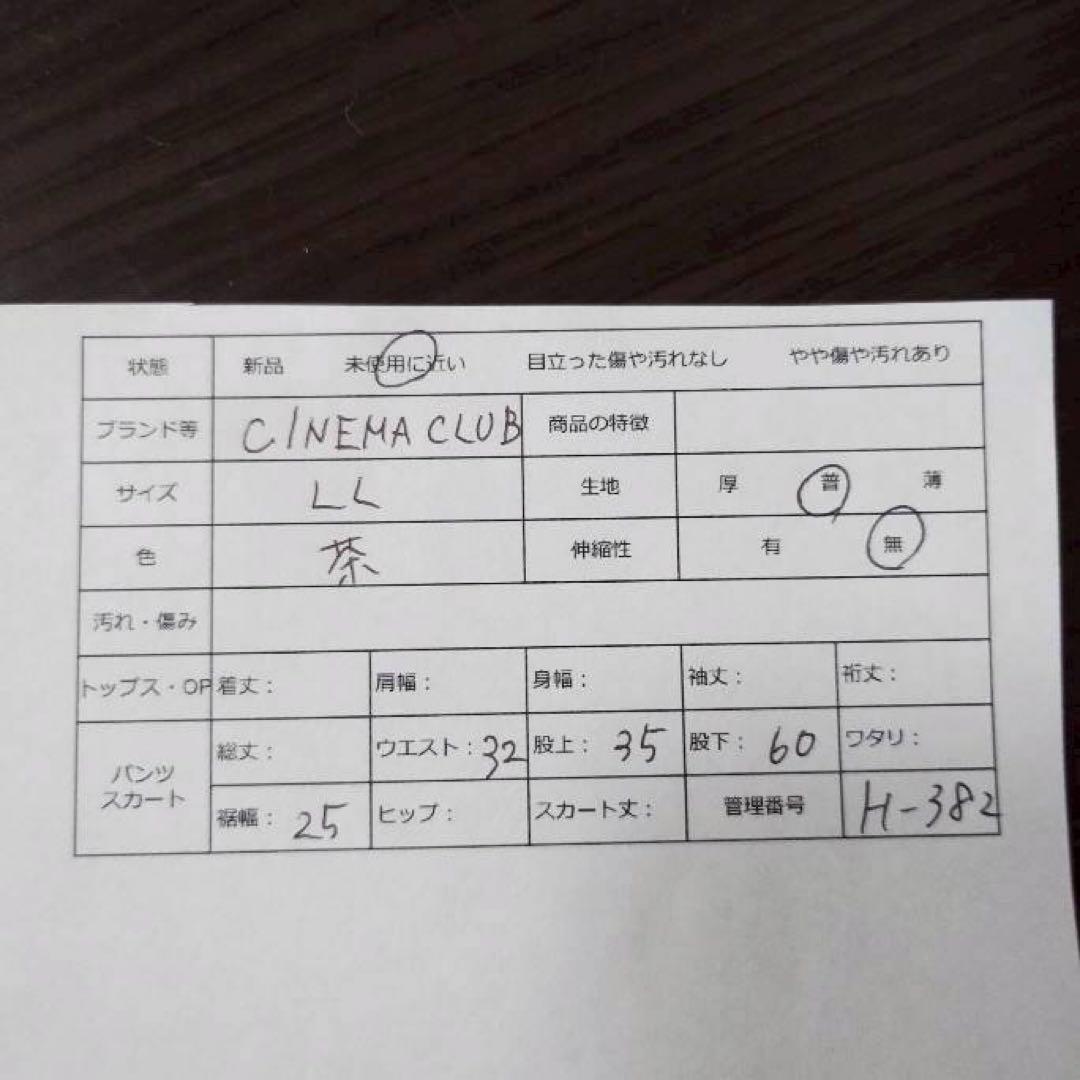 状態 新品 未使用に近い 目立った傷や汚れなし やや傷や汚れあり
ブランド等 CINEMA CLUB 商品の特徴
サイズ LL 生地 厚 普 薄
色 茶 伸縮性 有 無
汚れ・傷み
トップス・OP 着丈： 肩幅： 身幅： 袖丈： 裄丈：
パンツ
スカート
総丈： ウエスト：32 股上：35 股下：60 ワタリ：
裾幅：25 ヒップ： スカート丈： 管理番号 H-382